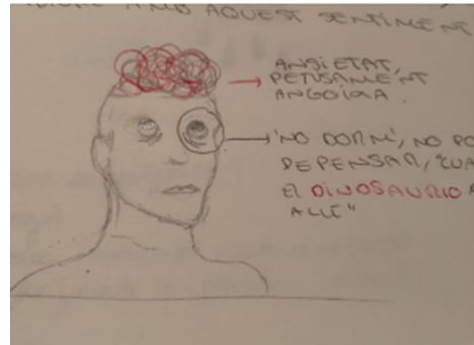 AMB AQUEST SENTIMENT
ANSIETAT,
PENSAMENT
ANGOIXA.
"NO DORMI, NO PO
DEPENSAR, "CUA
EL DINOSAURIO A
ALLÍ"